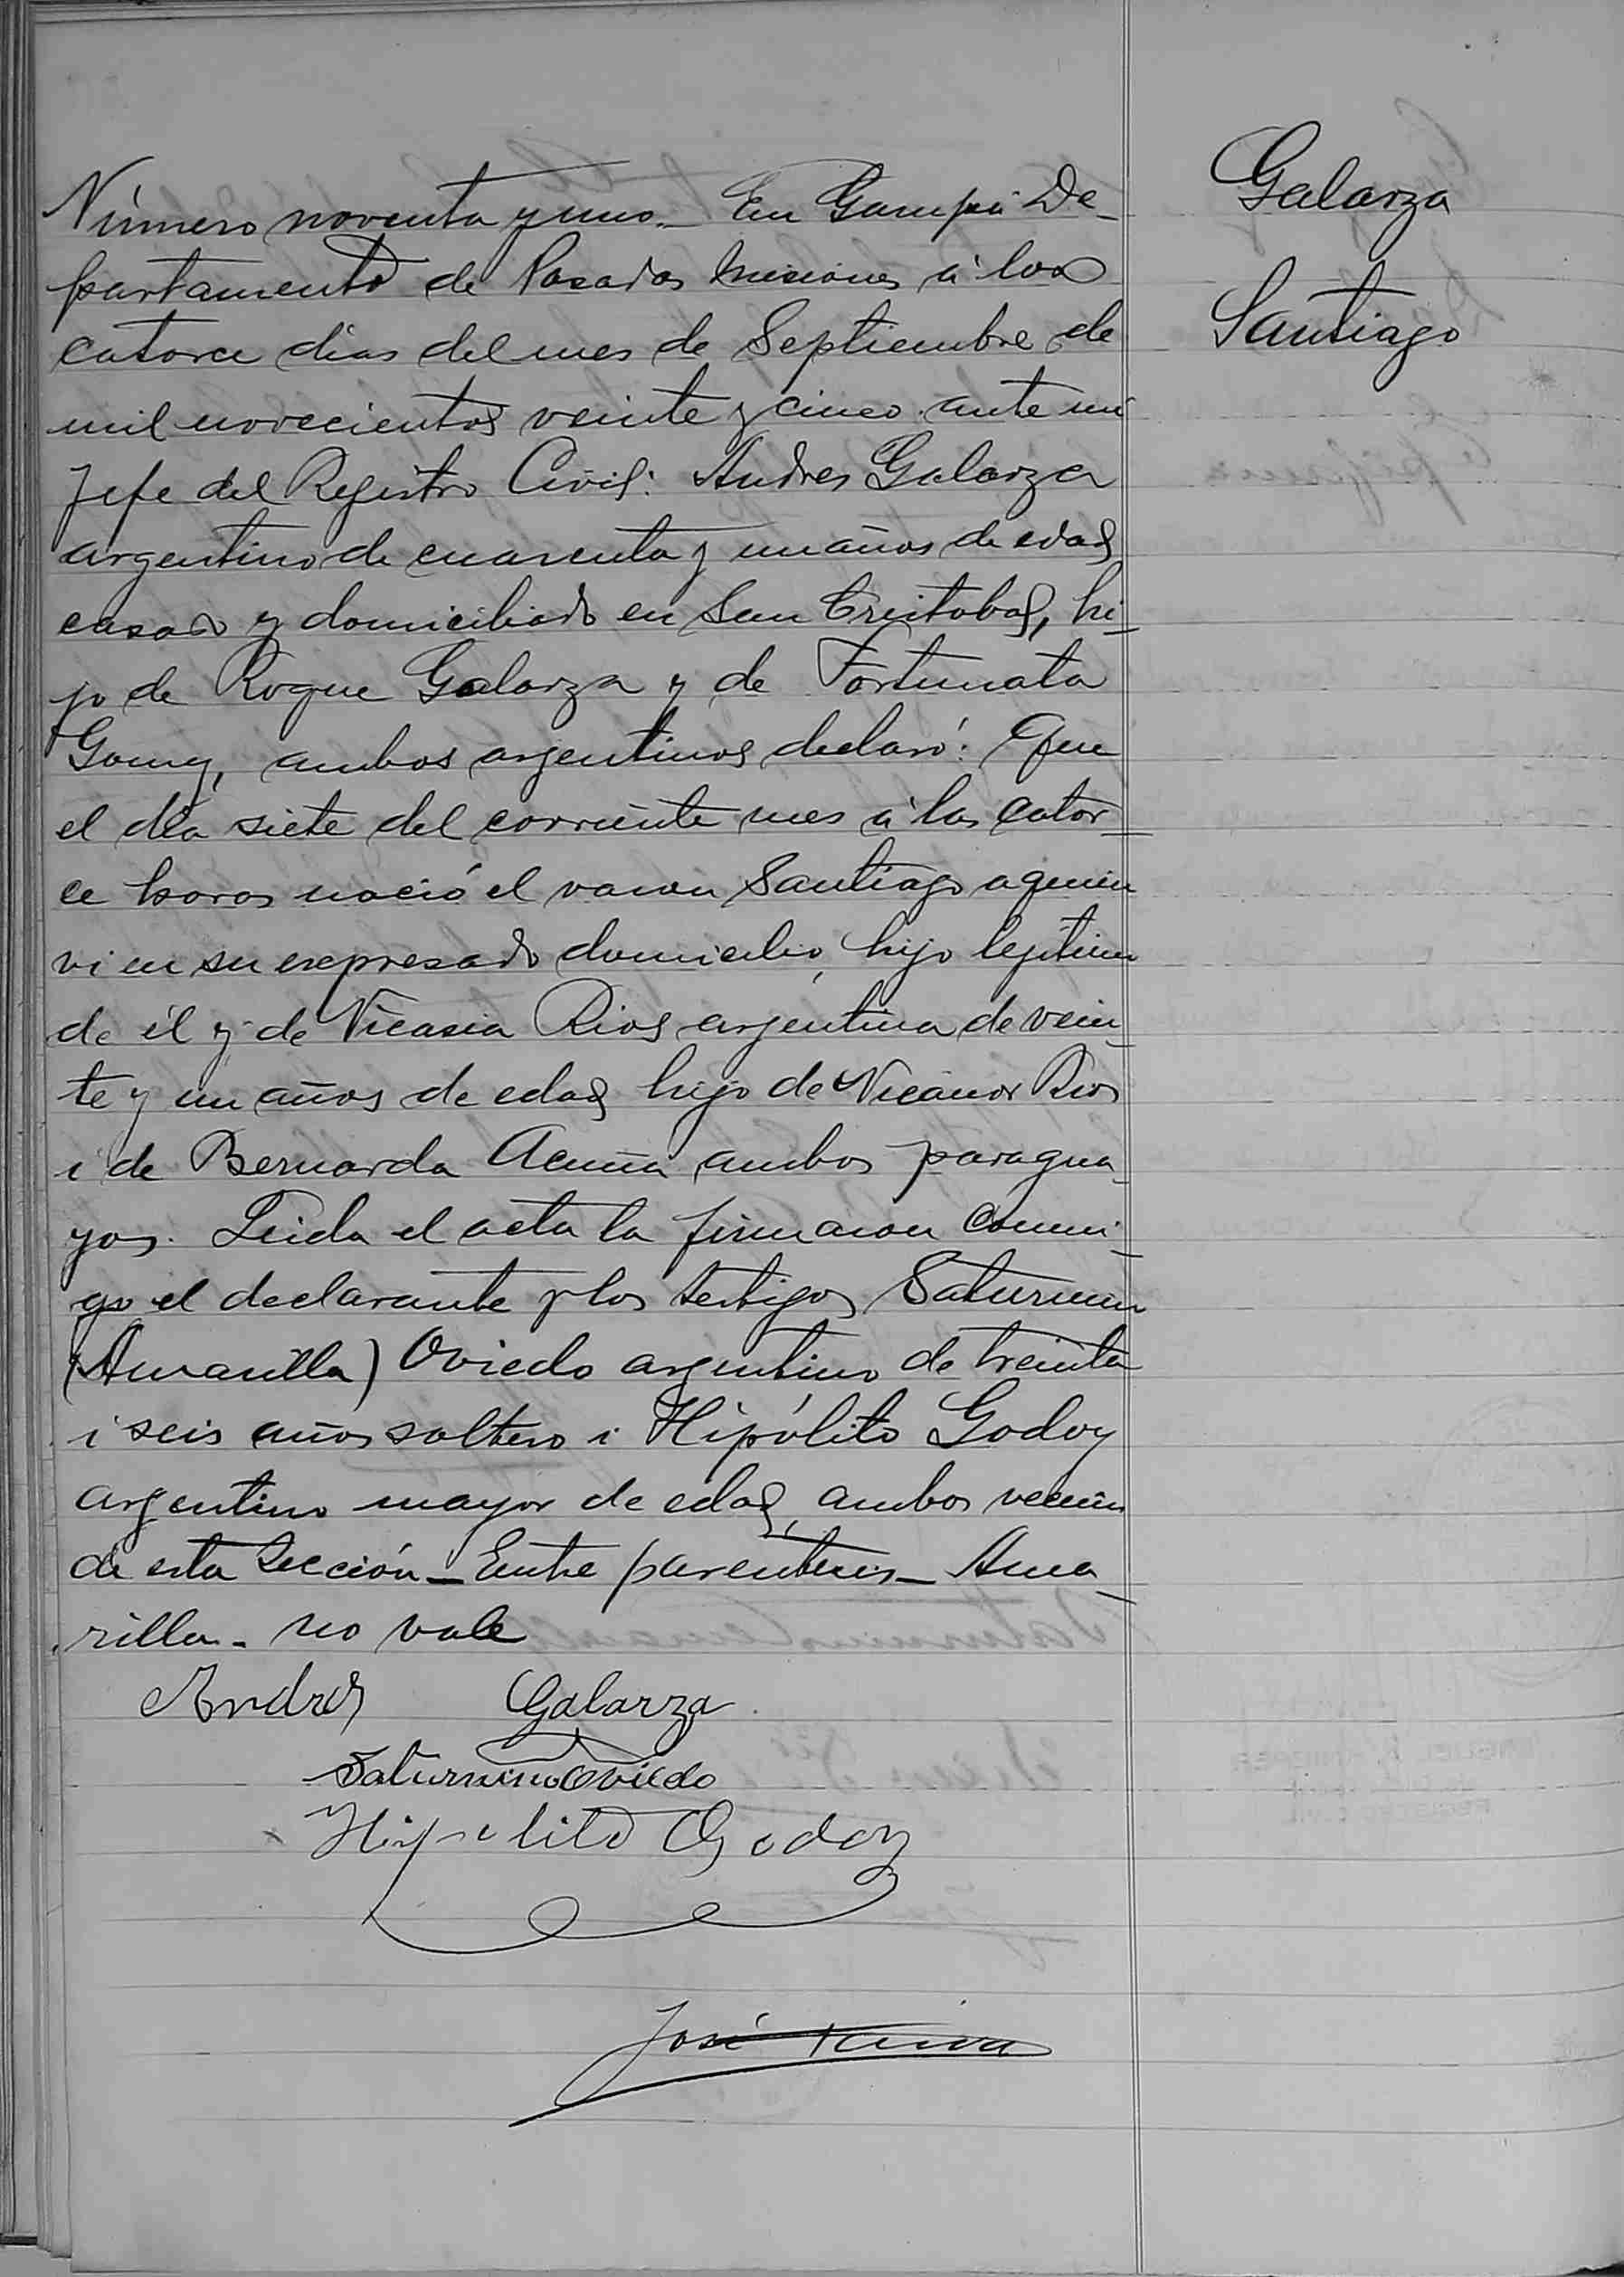 Galarza
Santiago
Número noventa y uno._ En Garupá De_
partamento de Posadas Misiones á los
catorce dias del mes de Septiembre de
mil novecientos veinte y cinco. ante mi
Jefe del Registro Civil: Andres Galarza
argentino de cuarenta y un años de edad
casado y domiciliado en San Cristobal, hi_
jo de Roque Galarza y de Fortunata
Gomez, ambos argentinos declaró: Que
el día siete del corriente mes á las cator_
ce horas nació el varon Santiago a quien
vi en su expresado domicilio, hijo legitimo
de él y de Nicasia Rios argentina de vein_
te y un años de edad hijo de Nicanor Rios
i de Bernarda Acuña ambos paragua_
yos. Leida el acta la firmaron conmi_
go el declarante y los testigos Saturnino
(Amarilla) Oviedo argentino de treinta
i seis años soltero i Hipólito Godoy
argentino mayor de edad, ambos vecinos
de esta Sección_ Entre parentesis_ Ama_
rilla_ no vale
Andres Galarza
Saturnino Oviedo
Hipolito Godoy
José